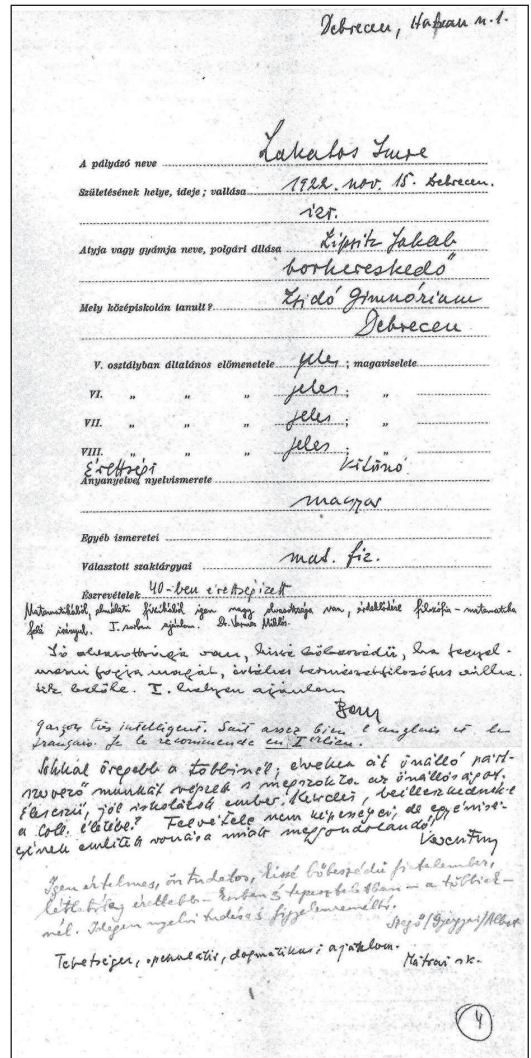 Debrecen, Hatvan u. 1.
A pályázó neve Lakatos Imre
Születésének helye, ideje; vallása 1922. nov. 15. Debrecen.
izr.
Atyja vagy gyámja neve, polgári állása Lipsitz Jakab
borkereskedő
Mely középiskolán tanult? Zsidó Gimnázium
Debrecen
V. osztályban általános előmenetele jeles; magaviselete
VI. „ „ „ jeles; „
VII. „ „ „ jeles; „
VIII. „ „ „ jeles; „
Érettségi kitűnő
Anyanyelve, nyelvismerete
magyar
Egyéb ismeretei
Választott szaktárgyai mat. fiz.
Észrevételek 40-ben érettségizett
Matematikából, elméleti fizikából igen nagy olvasottsága van, érdeklődése filozófia-matematika
felé irányul. I. sorban ajánlom. Dr. Vermes Miklós.
Jó olvasottsága van, kissé bőbeszédű, ha fegyel-
mezni fogja magát, értékes természetfilozófus válha-
tik belőle. I. helyen ajánlom
Garçon très intelligent. Sait assez bien l'anglais et le
français. Je le recommende en I
Sokkal öregebb a többinél; éveken át önálló párt-
szervező munkát végzett s megszokta az önállóságot.
Éleseszű, jól iskolázott ember. Kérdés, beilleszkednék-e
a Coll. életébe? Felvétele nem képességei, de egyénisé-
gének említett vonása miatt meggondolandó.
Igen értelmes, öntudatos, kissé bőbeszédű fiatalember,
láthatólag érettebb – korban s tapasztalatban – a többiek-
nél. Idegen nyelvi tudása figyelemreméltó.
Szegő/Gyergyai/Albert
Tehetséges, spekulatív, dogmatikus; ajánlom.
Mátrai sk.
4